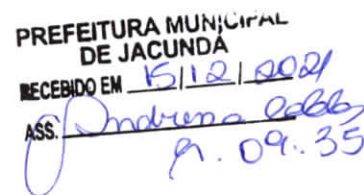 PREFEITURA MUNICIPAL
DE JACUNDÁ
RECEBIDO EM 15/12/2021
ASS. Andressa
09:35